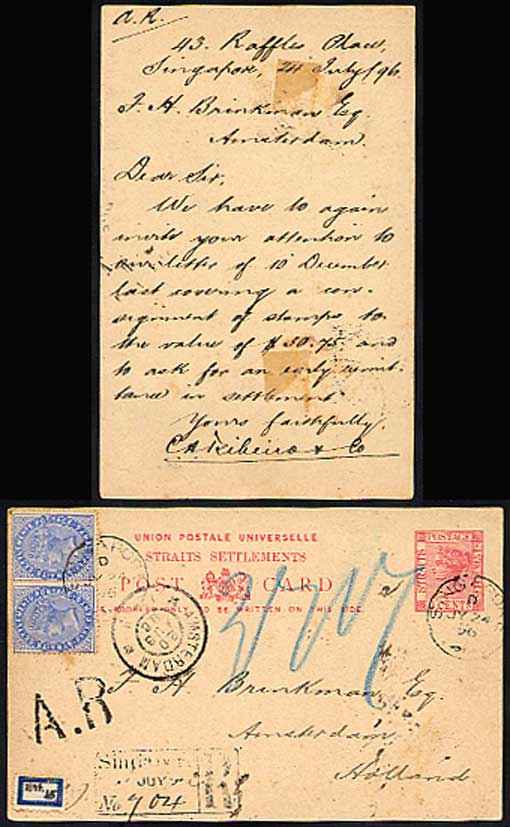 A.R.
43. Raffles Place,
Singapore, 24 July/96.
J. H. Brinkman Esq.
Amsterdam.
Dear Sir,
We have to again
invite your attention to
our letter of 10 December
last covering a con-
signment of stamps to
the value of $50.75 and
to ask for an early remit-
tance in settlement.
Yours faithfully,
C. A. Ribeiro & Co
UNION POSTALE UNIVERSELLE
STRAITS SETTLEMENTS
POST CARD
ADDRESS ONLY TO BE WRITTEN ON THIS SIDE.
STRAITS
POSTAGE
CENTS
SINGAPORE
JY 24
96
AMSTERDAM
A.R
J. H. Brinkman Esq.
Amsterdam
Holland
Singapore
JUY
R
No. 704